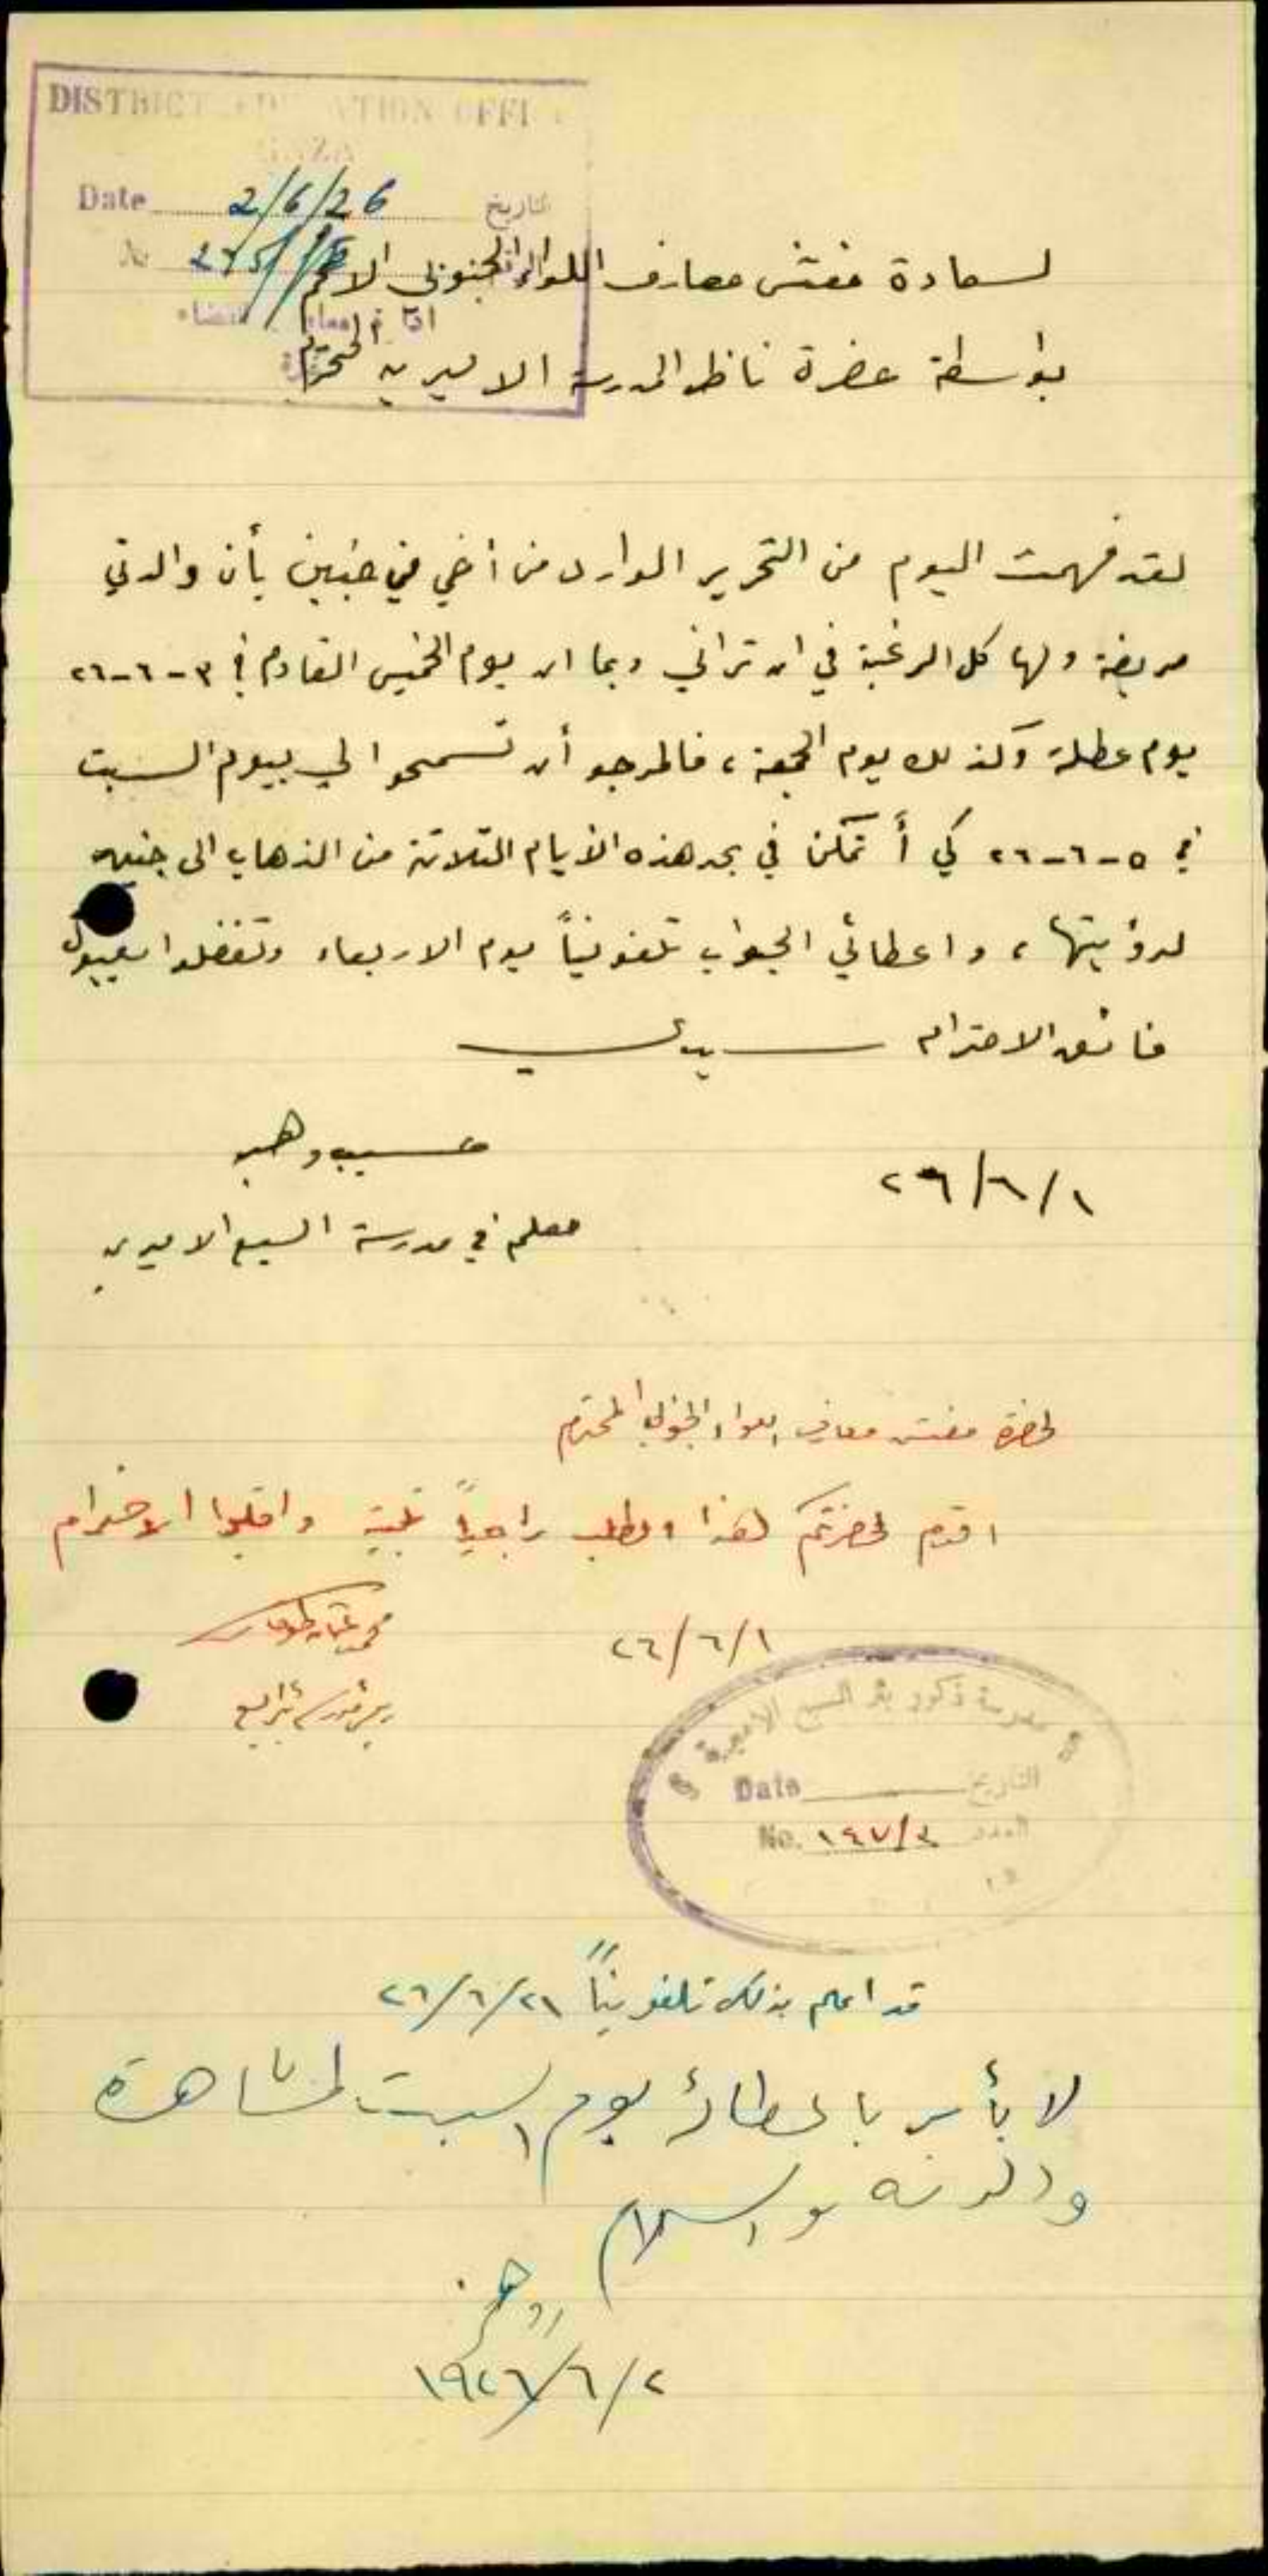 DISTRICT EDUCATION OFFICE
GAZA
Date 2/6/26 التاريخ
No
لسعادة مفتش معارف اللواء الجنوبي الافخم
بواسطة حضرة ناظر المدرسة الاميرية المحترم
لقد فهمت اليوم من التحرير الوارد من أخي في جنين بأن والدتي
مريضة ولها كل الرغبة في ان تراني وبما ان يوم الخميس القادم في ٣-٦-٢٦
يوم عطلة وكذلك يوم الجمعة، فالمرجو أن تسمحوا لي بيوم السبت
في ٥-٦-٢٦ كي أتمكن في بحر هذه الأيام الثلاثة من الذهاب الى جنين
لرؤيتها، واعطائي الجواب تلفونياً يوم الاربعاء وتفضلوا بقبول
فائق الاحترام سيدي
٢٦/٦/١
حسيب وهبه
معلم في مدرسة السبع الاميرية
لحضرة مفتش معارف اللواء الجنوبي المحترم
اقدم لحضرتكم هذا الطلب راجياً تلبيته واقبلوا الاحترام
٢٦/٦/١
مدرسة ذكور بئر السبع الاميرية
Date التاريخ
No. ١٤٧/٣ العدد
قد اعلم بذلك تلفونياً ٢٦/٦/٢
لا بأس باعطائه يوم السبت لمشاهدة
والدته والسلام
١٩٢٦/٦/٢